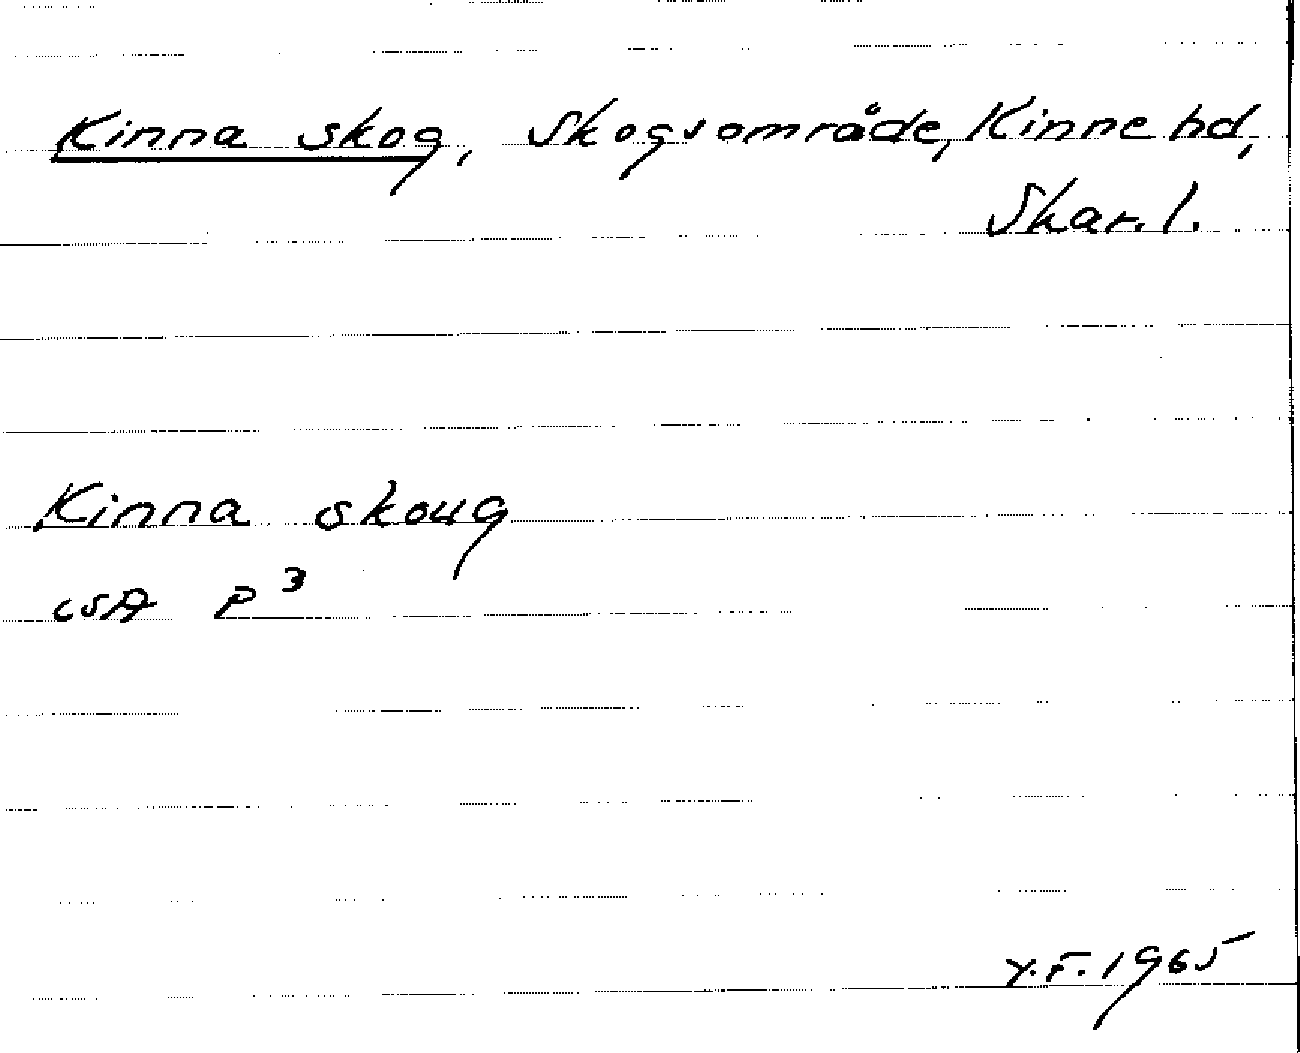 Kinna skog, Skogsområde, Kinne hd,
Skar. l.
Kinna skoug
LSA P³
Y.F. 1965